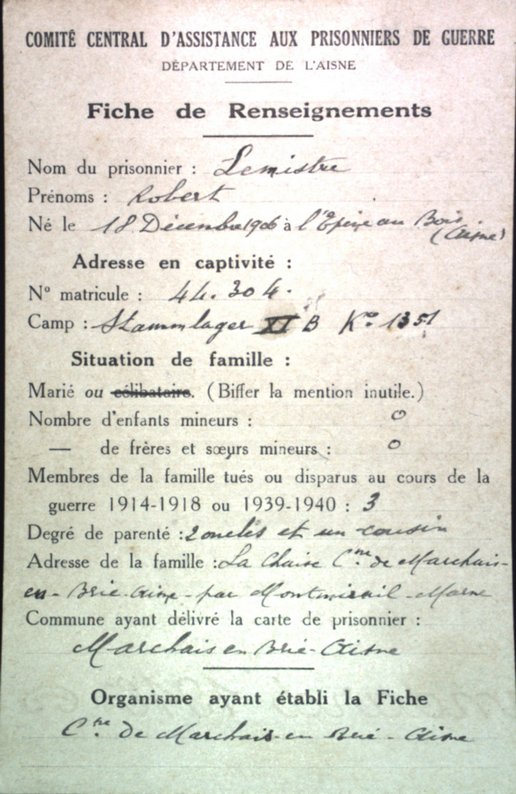 COMITÉ CENTRAL D'ASSISTANCE AUX PRISONNIERS DE GUERRE
DÉPARTEMENT DE L'AISNE
Fiche de Renseignements
Nom du prisonnier : Lemistre
Prénoms : Robert
Né le 18 Décembre 1906 à l'Epine au Bois
(Aisne)
Adresse en captivité :
N° matricule : 44.304.
Camp : Stammlager XI B Kdo 1351
Situation de famille :
Marié ou célibataire. (Biffer la mention inutile.)
Nombre d'enfants mineurs : 0
— de frères et sœurs mineurs : 0
Membres de la famille tués ou disparus au cours de la
guerre 1914-1918 ou 1939-1940 : 3
Degré de parenté : 2 oncles et un cousin
Adresse de la famille : La Chaise Cne de Marchais-
en-Brie-Aisne-par Montmirail-Marne
Commune ayant délivré la carte de prisonnier :
Marchais en Brie-Aisne
Organisme ayant établi la Fiche
Cne de Marchais-en Brie-Aisne